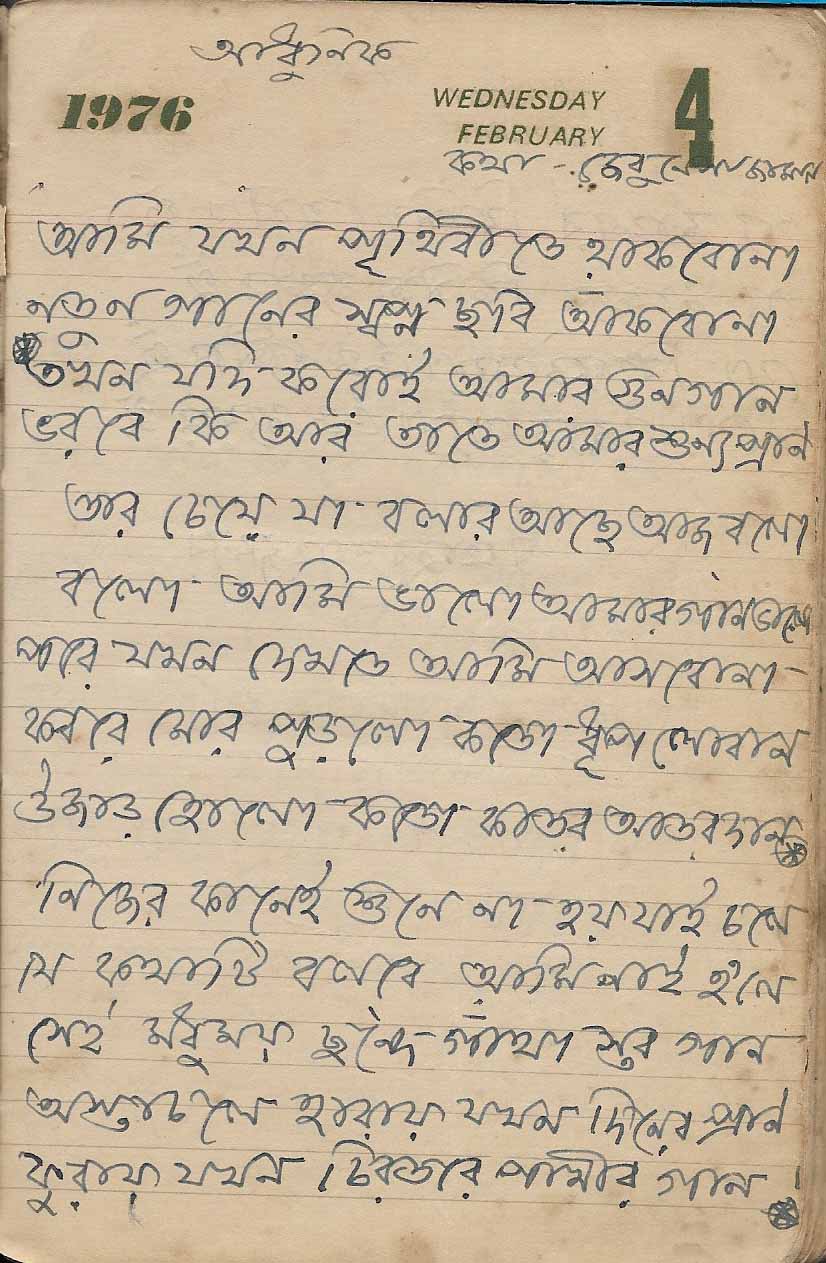 আধুনিক
1976 WEDNESDAY FEBRUARY 4
কথা - জেবুন্নেসা জামান
আমি যখন পৃথিবীতে থাকবোনা
নতুন গানের স্বপ্ন ছবি আঁকবোনা
তখন যদি করোই আমার গুনগান
ভরবে কি আর তাতে আমার শুন্য প্রান
তার চেয়ে যা বলার আছে আজ বলো
বলো আমি ভালো আমার গান ভালো
পরে যখন দেখতে আমি আসবোনা
কবরে মোর পুড়লো কতো ধূপ লোবান
উজাড় হোলো কতো কাতর আতরদান
নিজের কানেই শুনে না হয় যাই চলে
যে কথাটি বলবে আমি নাই হলে
সেই মধুময় ছন্দে গাঁথা স্তব গান
অস্তাচলে হারায় যখন দিনের প্রান
ফুরায় যখন চিরতরে পাখীর গান